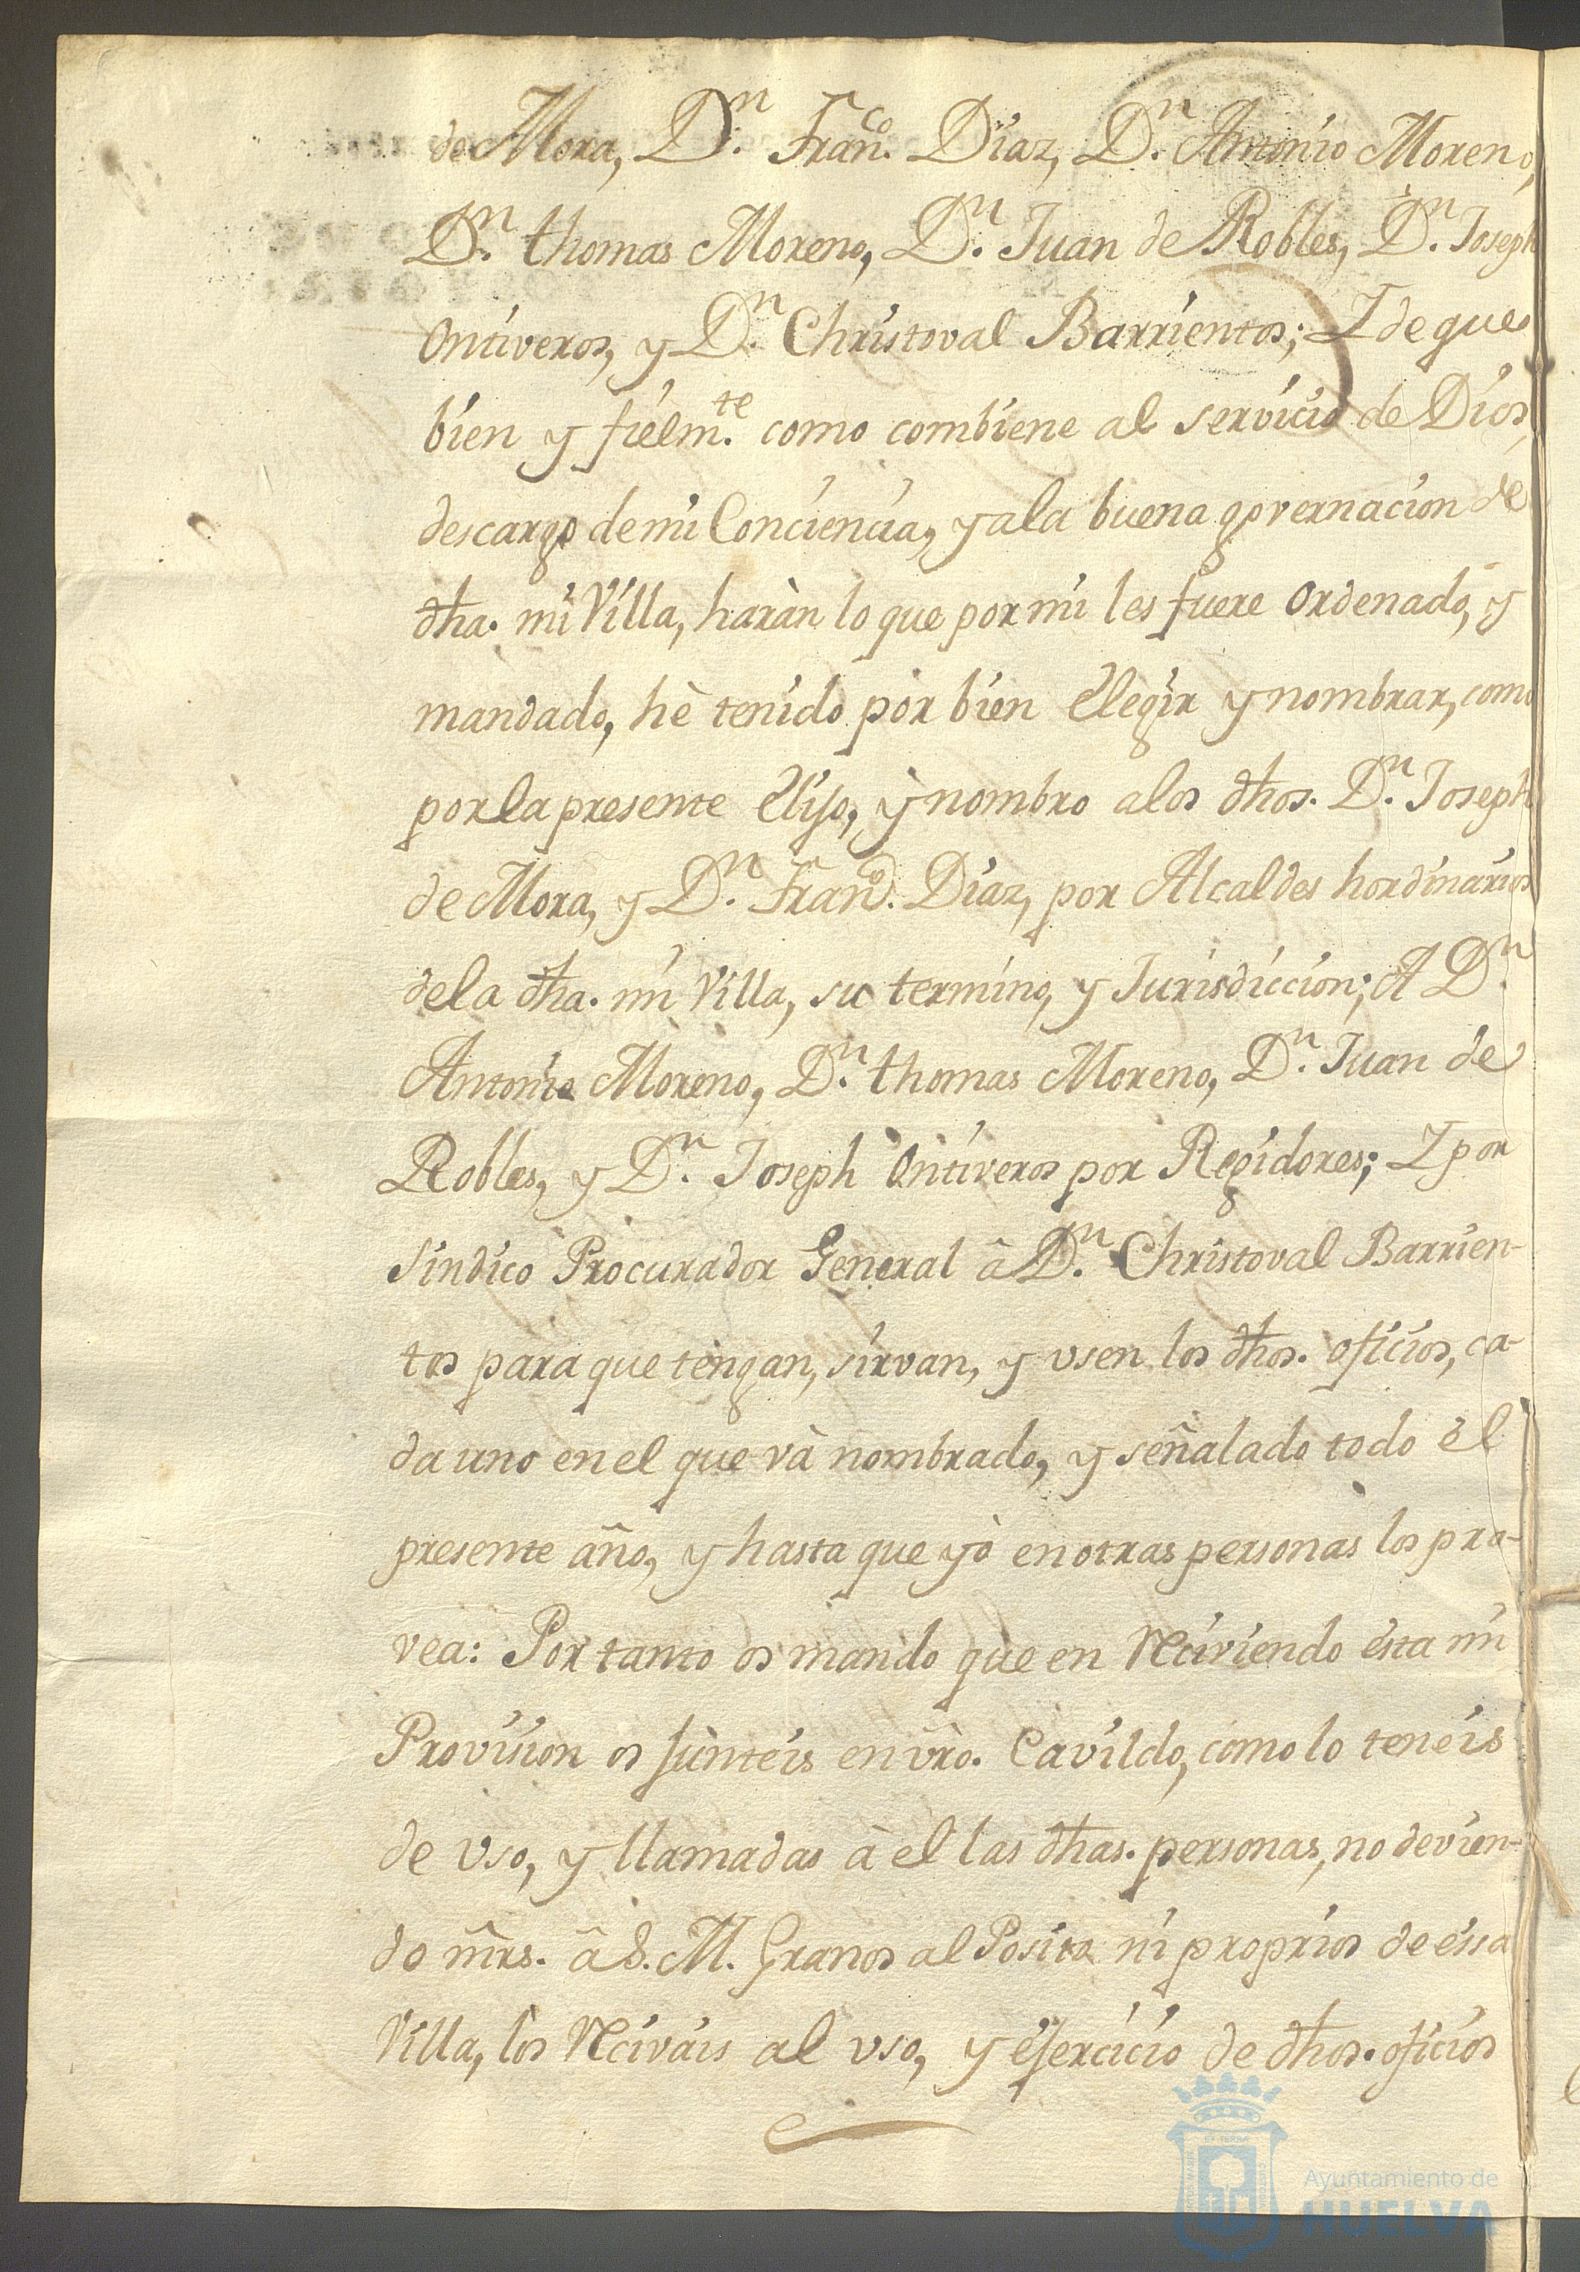 de Mora, D.n Fran.co Diaz, D.n Antonio Moreno,
D.n thomas Moreno, D.n Juan de Robles, D.n Joseph
Ontiveros, y D.n Christoval Barrientos; Y de que
bien y fielm.te como combiene al servicio de Dios,
descargo de mi Conciencia, y a la buena governacion de
dha. mi Villa, haràn lo que por mi les fuere Ordenado, y
mandado, hè tenido por bien Elegir y nombrar, como
por la presente Elijo, ÿ nombro a los dhos. D.n Joseph
de Mora, y D.n Fran.co Diaz, por Alcaldes hordinarios
de la dha. mi Villa, su termino, y Jurisdiccion; A D.n
Antonio Moreno, D.n thomas Moreno, D.n Juan de
Robles, y D.n Joseph Ontiveros por Regidores; Y por
Sindico Procurador General â D.n Christoval Barrien-
tos para que tengan, sirvan, y vsen los dhos. oficios, ca-
da uno en el que và nombrado, y señalado todo èl
presente año, y hasta que yò en otras personas los pro-
vea: Por tanto os mando que en Reciviendo ésta mi
Provision os juntéis en vro. Cavildo, como lo tenéis
de vso, y llamadas à el las dhas. personas, no devien-
do mrs. â S. M. Granos al Posito ni proprios de éssa
Villa, los Reciváis al vso, y éjercicio de dhos. oficios
Ayuntamiento de
HUELVA